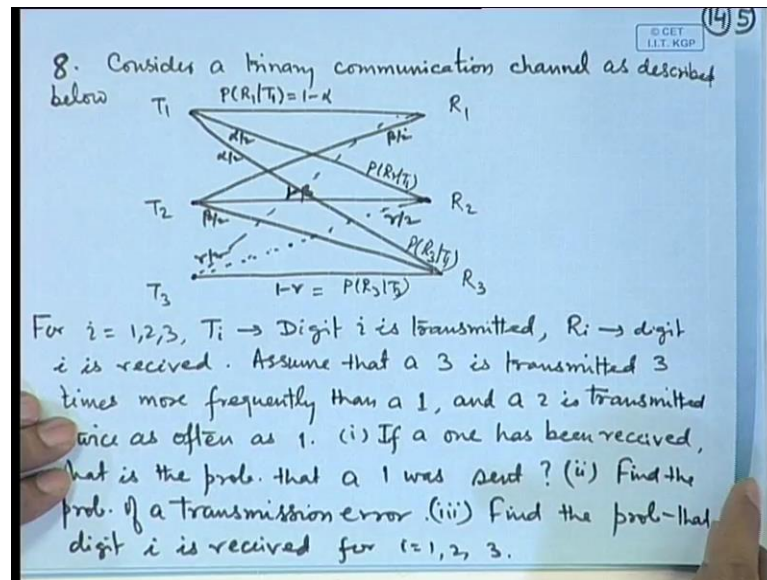 14 5
© CET
I.I.T. KGP
8. Consider a binary communication channel as described
below
T1 P(R1|T1)=1-α R1
α/2 β/2
α/2 P(R2|T1)
T2 1-β R2
β/2 γ/2
γ/2 P(R3|T1)
T3 1-γ = P(R3|T3) R3
For i = 1,2,3, Ti → Digit i is transmitted, Ri → digit
i is recived. Assume that a 3 is transmitted 3
times more frequently than a 1, and a 2 is transmitted
twice as often as 1. (i) If a one has been received,
what is the prob. that a 1 was sent? (ii) Find the
prob. of a transmission error. (iii) Find the prob-that
digit i is received for i=1, 2, 3.